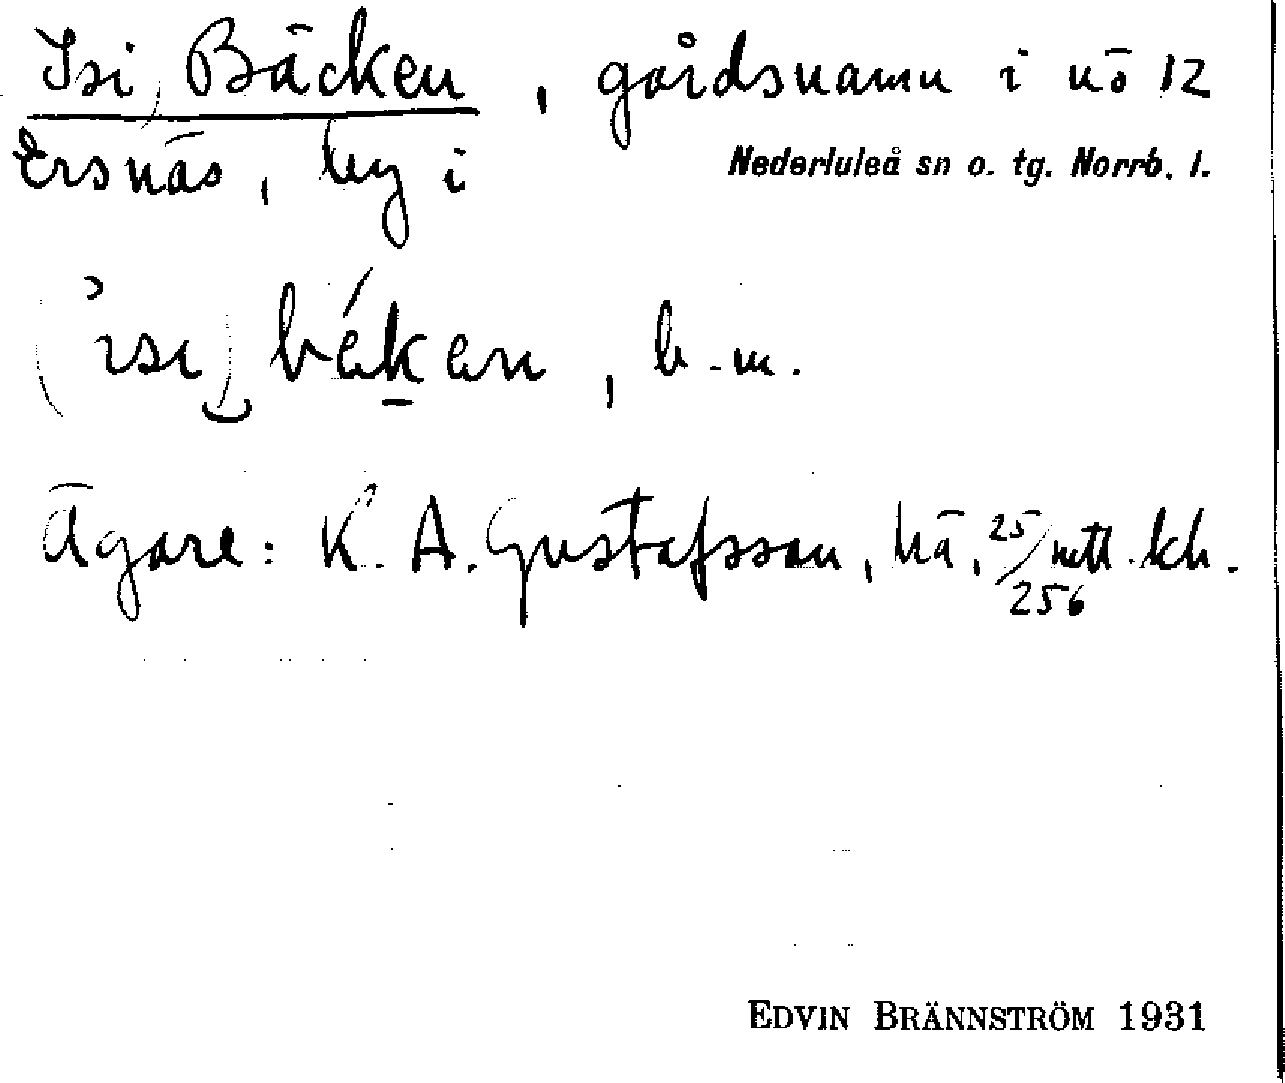 Isi) Bäcken, gårdsnamn i nö 12
Ersnäs, by i Nederluleå sn o. tg. Norrb. l.
(ɩsɩ) békȧn, b.m.
Ägare: K. A. Gustafsson, hä, 25/256 mtl. kh.
EDVIN BRÄNNSTRÖM 1931